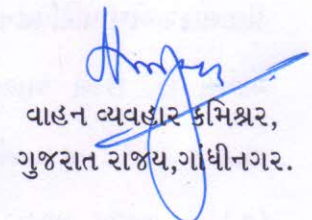 વાહન વ્યવહાર કમિશ્રર,
ગુજરાત રાજય,ગાંધીનગર.